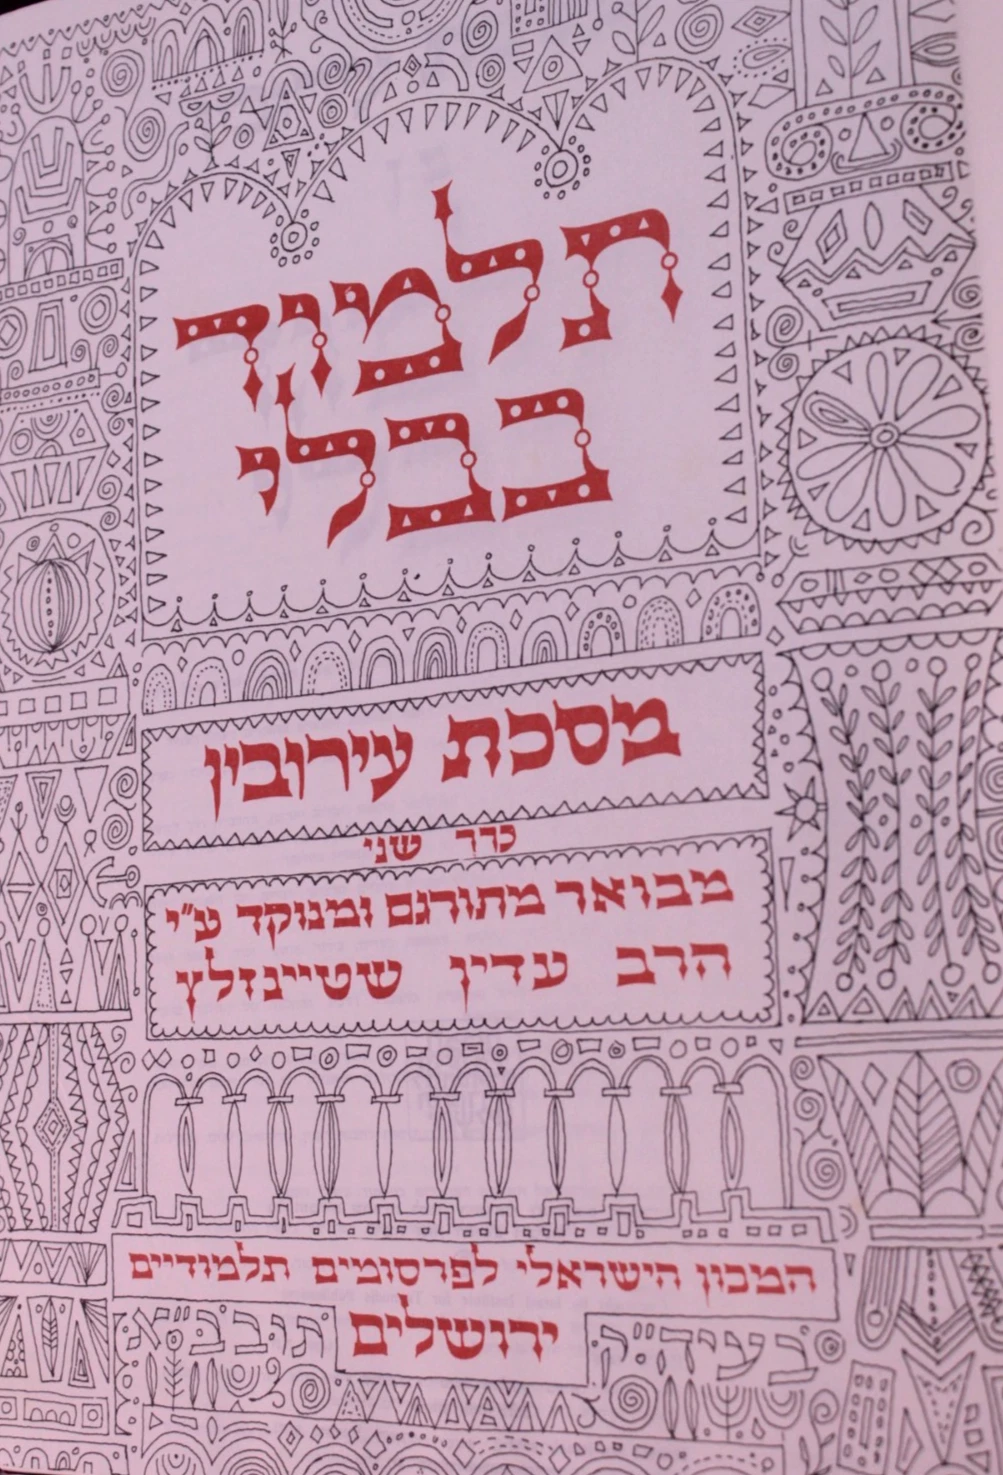 תלמוד
בבלי
מסכת עירובין
כרך שני
מבואר מתורגם ומנוקד ע"י
הרב עדין שטיינזלץ
המכון הישראלי לפרסומים תלמודיים
בעיה"ק ירושלים תובב"א